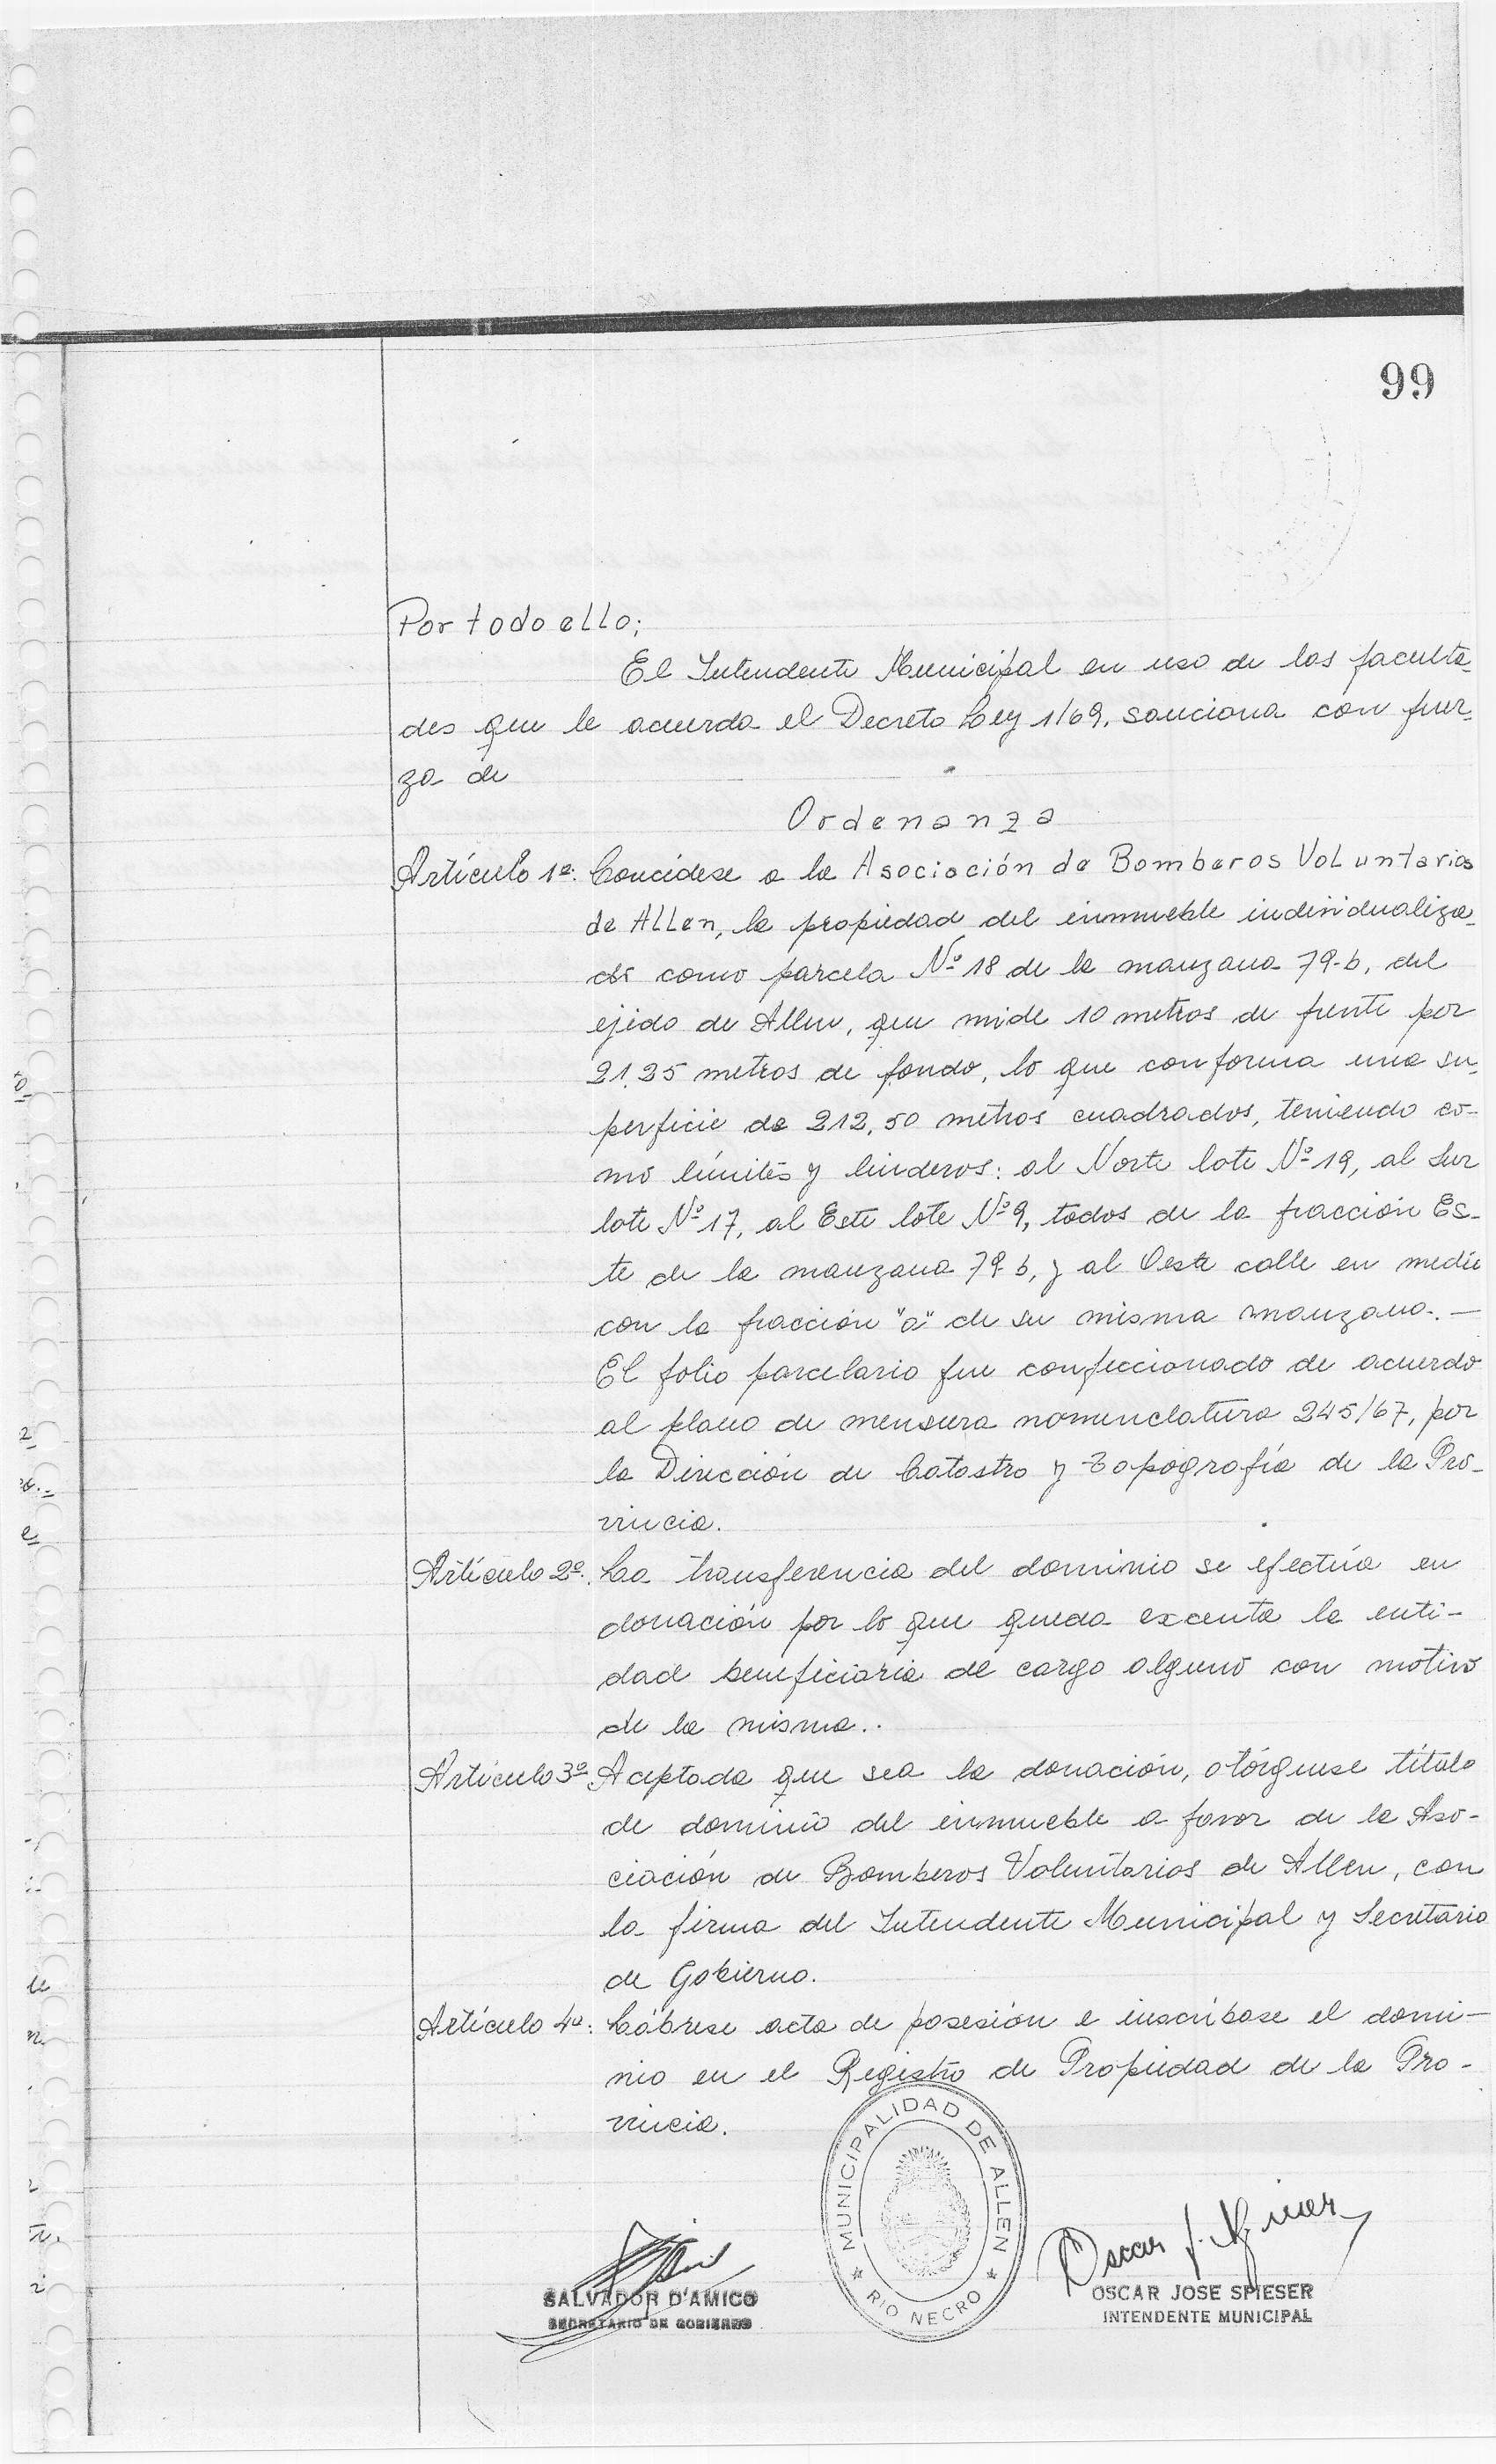 99
Por todo ello;
El Intendente Municipal en uso de las faculta-
des que le acuerda el Decreto Ley 1/69, sanciona con fuer-
za de
Ordenanza
Artículo 1º: Concédese a la Asociación de Bomberos Voluntarios
de Allen, la propiedad del inmueble individualiza-
do como parcela Nº 18 de la manzana 79-b, del
ejido de Allen, que mide 10 metros de frente por
21,25 metros de fondo, lo que conforma una su-
perficie de 212,50 metros cuadrados, teniendo co-
mo límites y linderos: al Norte lote Nº 19, al Sur
lote Nº 17, al Este lote Nº 9, todos de la fracción Es-
te de la manzana 79-b, y al Oeste calle en medio
con la fracción "a" de su misma manzana.-
El folio parcelario fue confeccionado de acuerdo
al plano de mensura nomenclatura 245/67, por
la Dirección de Catastro y Topografía de la Pro-
vincia.
Artículo 2º: La transferencia del dominio se efectúa en
donación por lo que queda excenta la enti-
dad beneficiaria de cargo alguno con motivo
de la misma..
Artículo 3º Aceptada que sea la donación, otórguese título
de dominio del inmueble a favor de la Aso-
ciación de Bomberos Voluntarios de Allen, con
la firma del Intendente Municipal y Secretario
de Gobierno.
Artículo 4º: Lábrese acta de posesión e inscríbase el domi-
nio en el Registro de Propiedad de la Pro-
vincia.
MUNICIPALIDAD DE ALLEN
RIO NEGRO
Oscar J. Spieser
SALVADOR D'AMICO
SECRETARIO DE GOBIERNO
OSCAR JOSE SPIESER
INTENDENTE MUNICIPAL